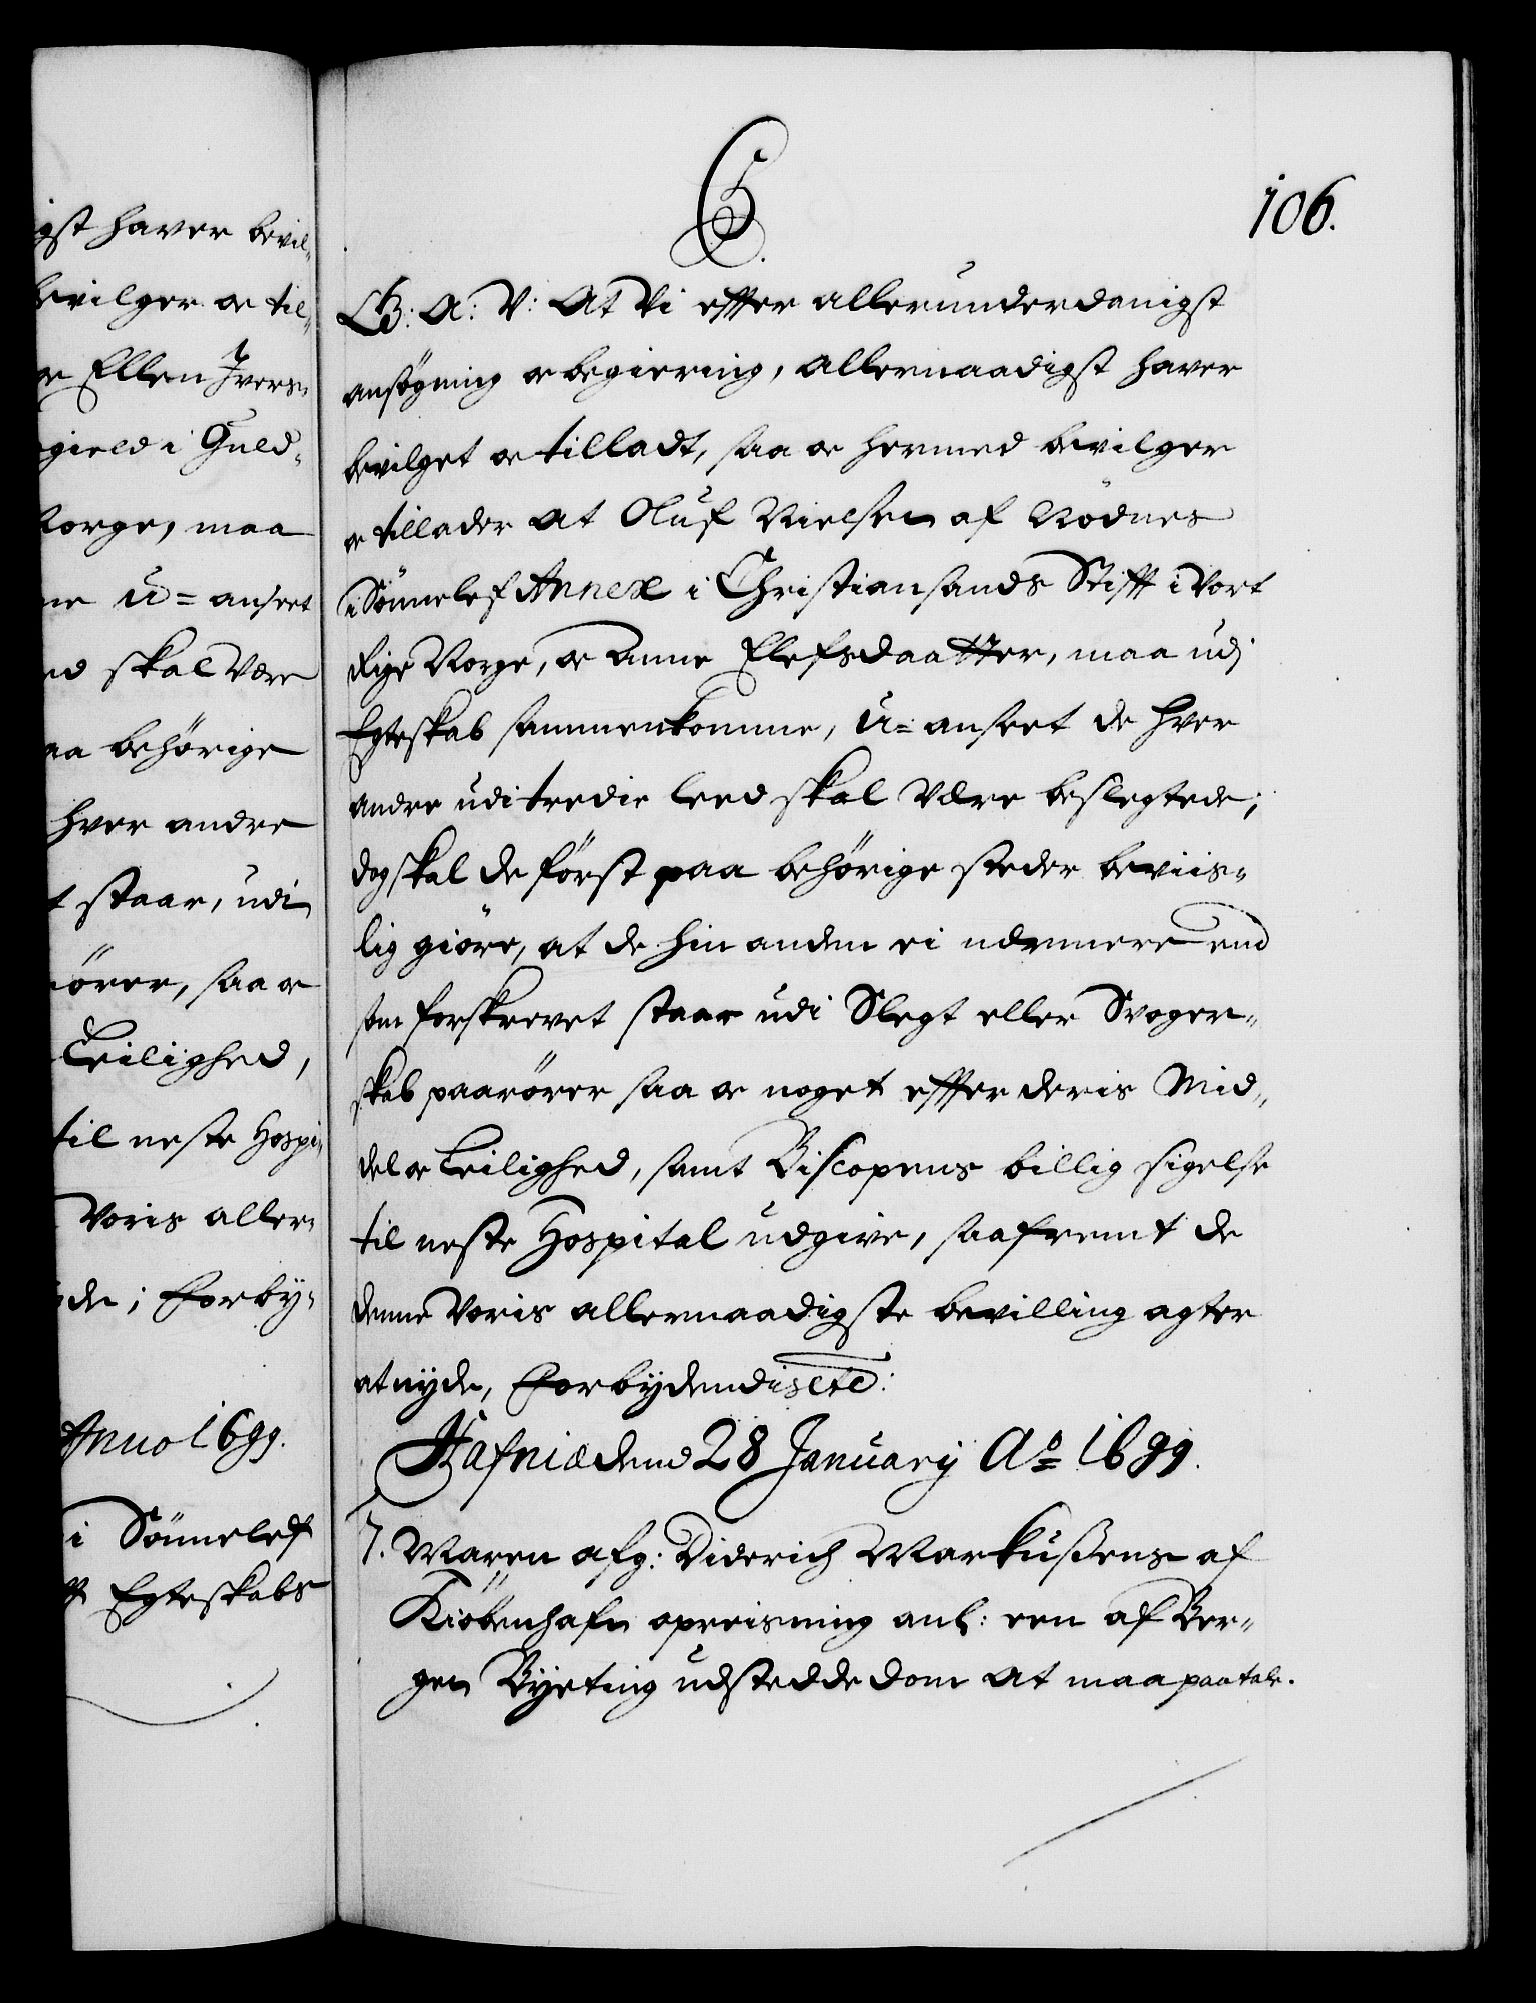 gst haver bevil-
bevilger oc til-
oc Ellen Jvers-
gield i Guld-
Norge, maa
ne u=anseet
ed skal være
aa behørige
hver andre
t staar, udi
rörer, saa oc
Leilighed,
til neste Hospi-
Voris aller-
de; Forby-
Anno 1699.
i Sönnelef
Egteskabs
106.
G.
G: A: V: At Vi effter allerunderdanigst
ansögning oc begiering, allernaadigst haver
bevilget oc tilladt, saa oc hermed bevilger
oc tillader at Oluf Nielsen af Rödnes
i Sönnelef Annex i Christiansands Stifft i Vort
Rige Norge, oc Anne Elefsdaatter, maa udj
Egteskab sammenkomme, u=anseet de hver
andre udi tredie leed skal være beslegtede;
dog skal de först paa behörige steder beviis-
lig giöre, at de hin anden ei nærmere end
som forskrevet staar udi Slegt eller Svoger-
skab paarörer saa oc noget effter deris Mid-
del oc Leilighed, samt Biscopens billig sigelse
til neste Hospital udgive, saafremt de
denne Voris allernaadigste bevilling agter
at nyde, Forbydendis etc:
Hafniæ dend 28 January Ao 1699.
7. Maren afg: Diderich Markussens af
Kiöbenhafn opreisning anl: een af Ber-
gen Byeting udstedde dom at maa paatale.